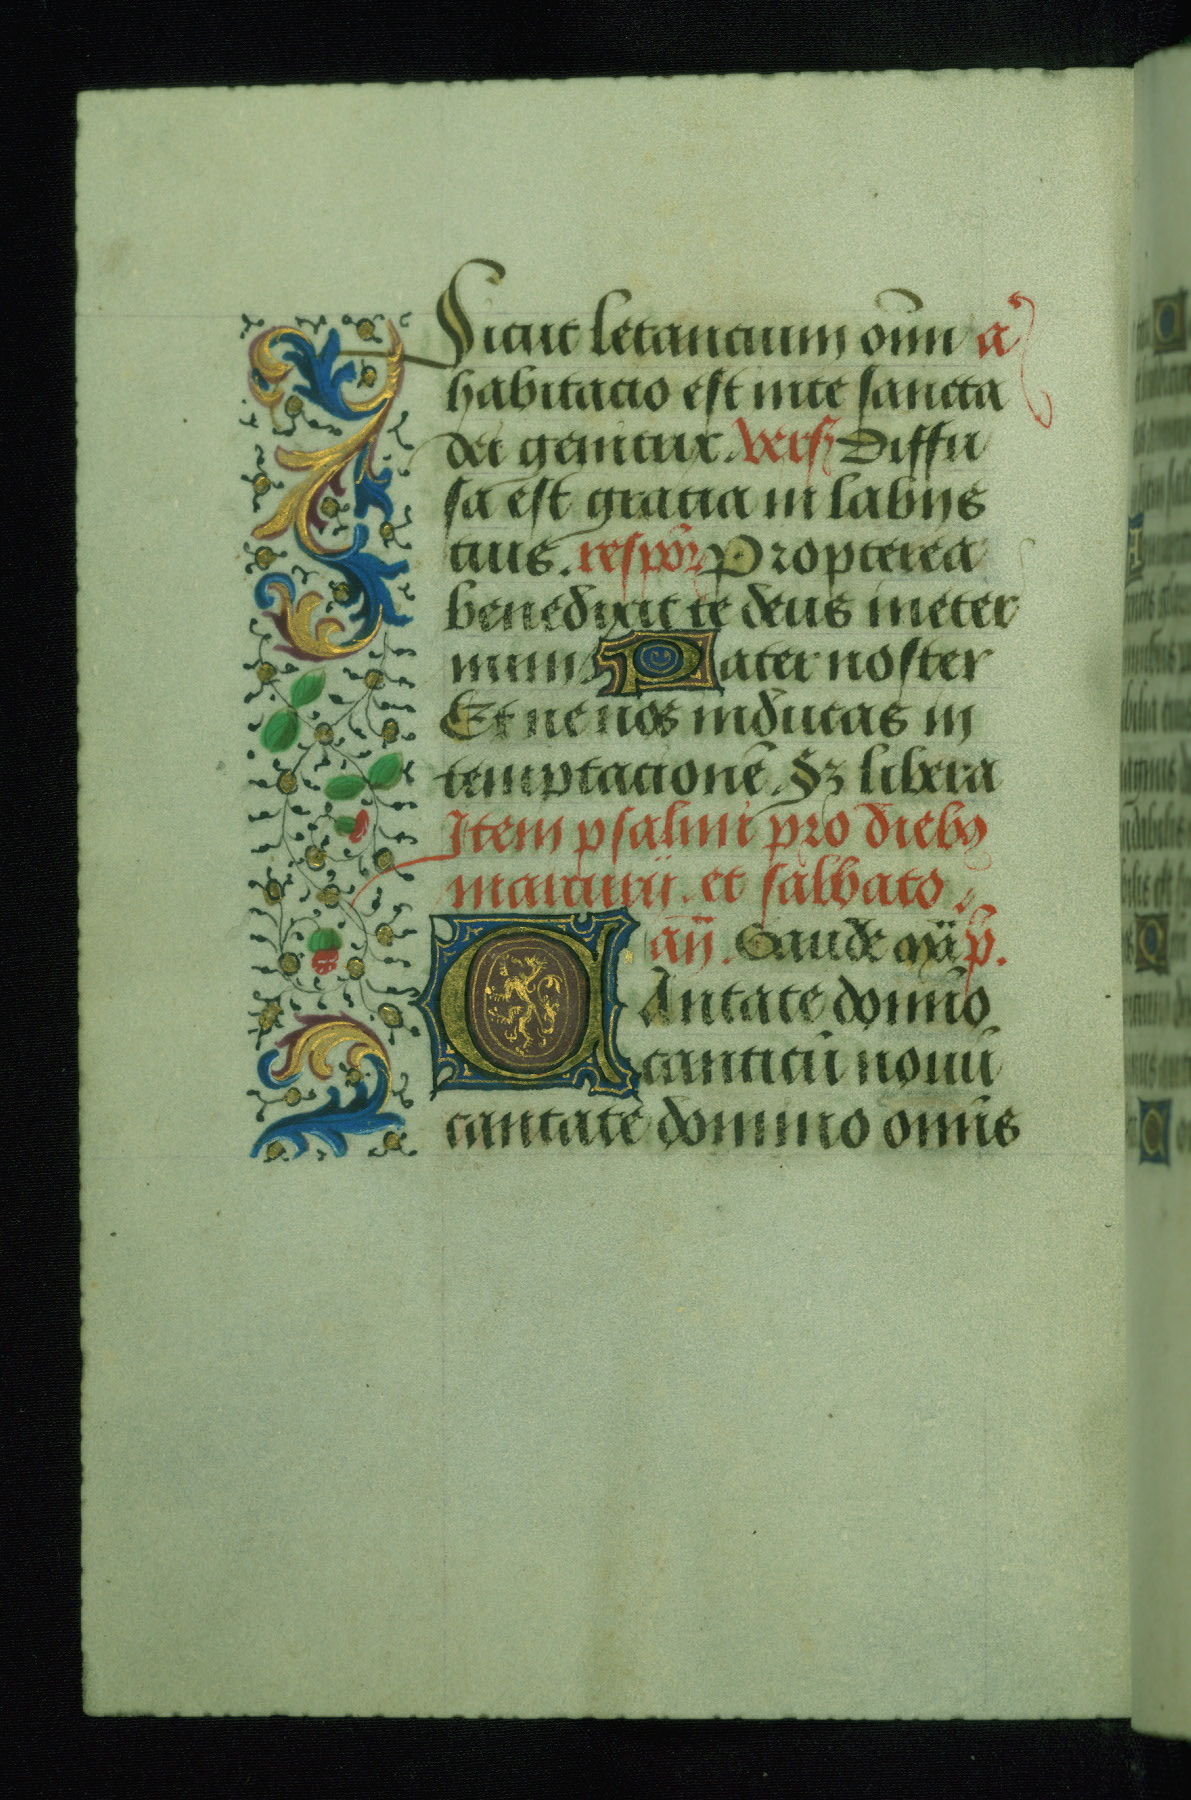 Sicut letancium om̄n a
habitacio est in te sancta
dei genitrix. vers Diffu
sa est gracia in labijs
tuis. respōn Propterea
benedixit te deus in eter
num Pater noster
Et ne nos inducas in
temptacionē. Sꝫ libera
Item psalmi pro diebꝫ
martirii. et salbato
añ. Gaude mͣia p.
CAntate domīno
canticū nouū
cantate domino omīs